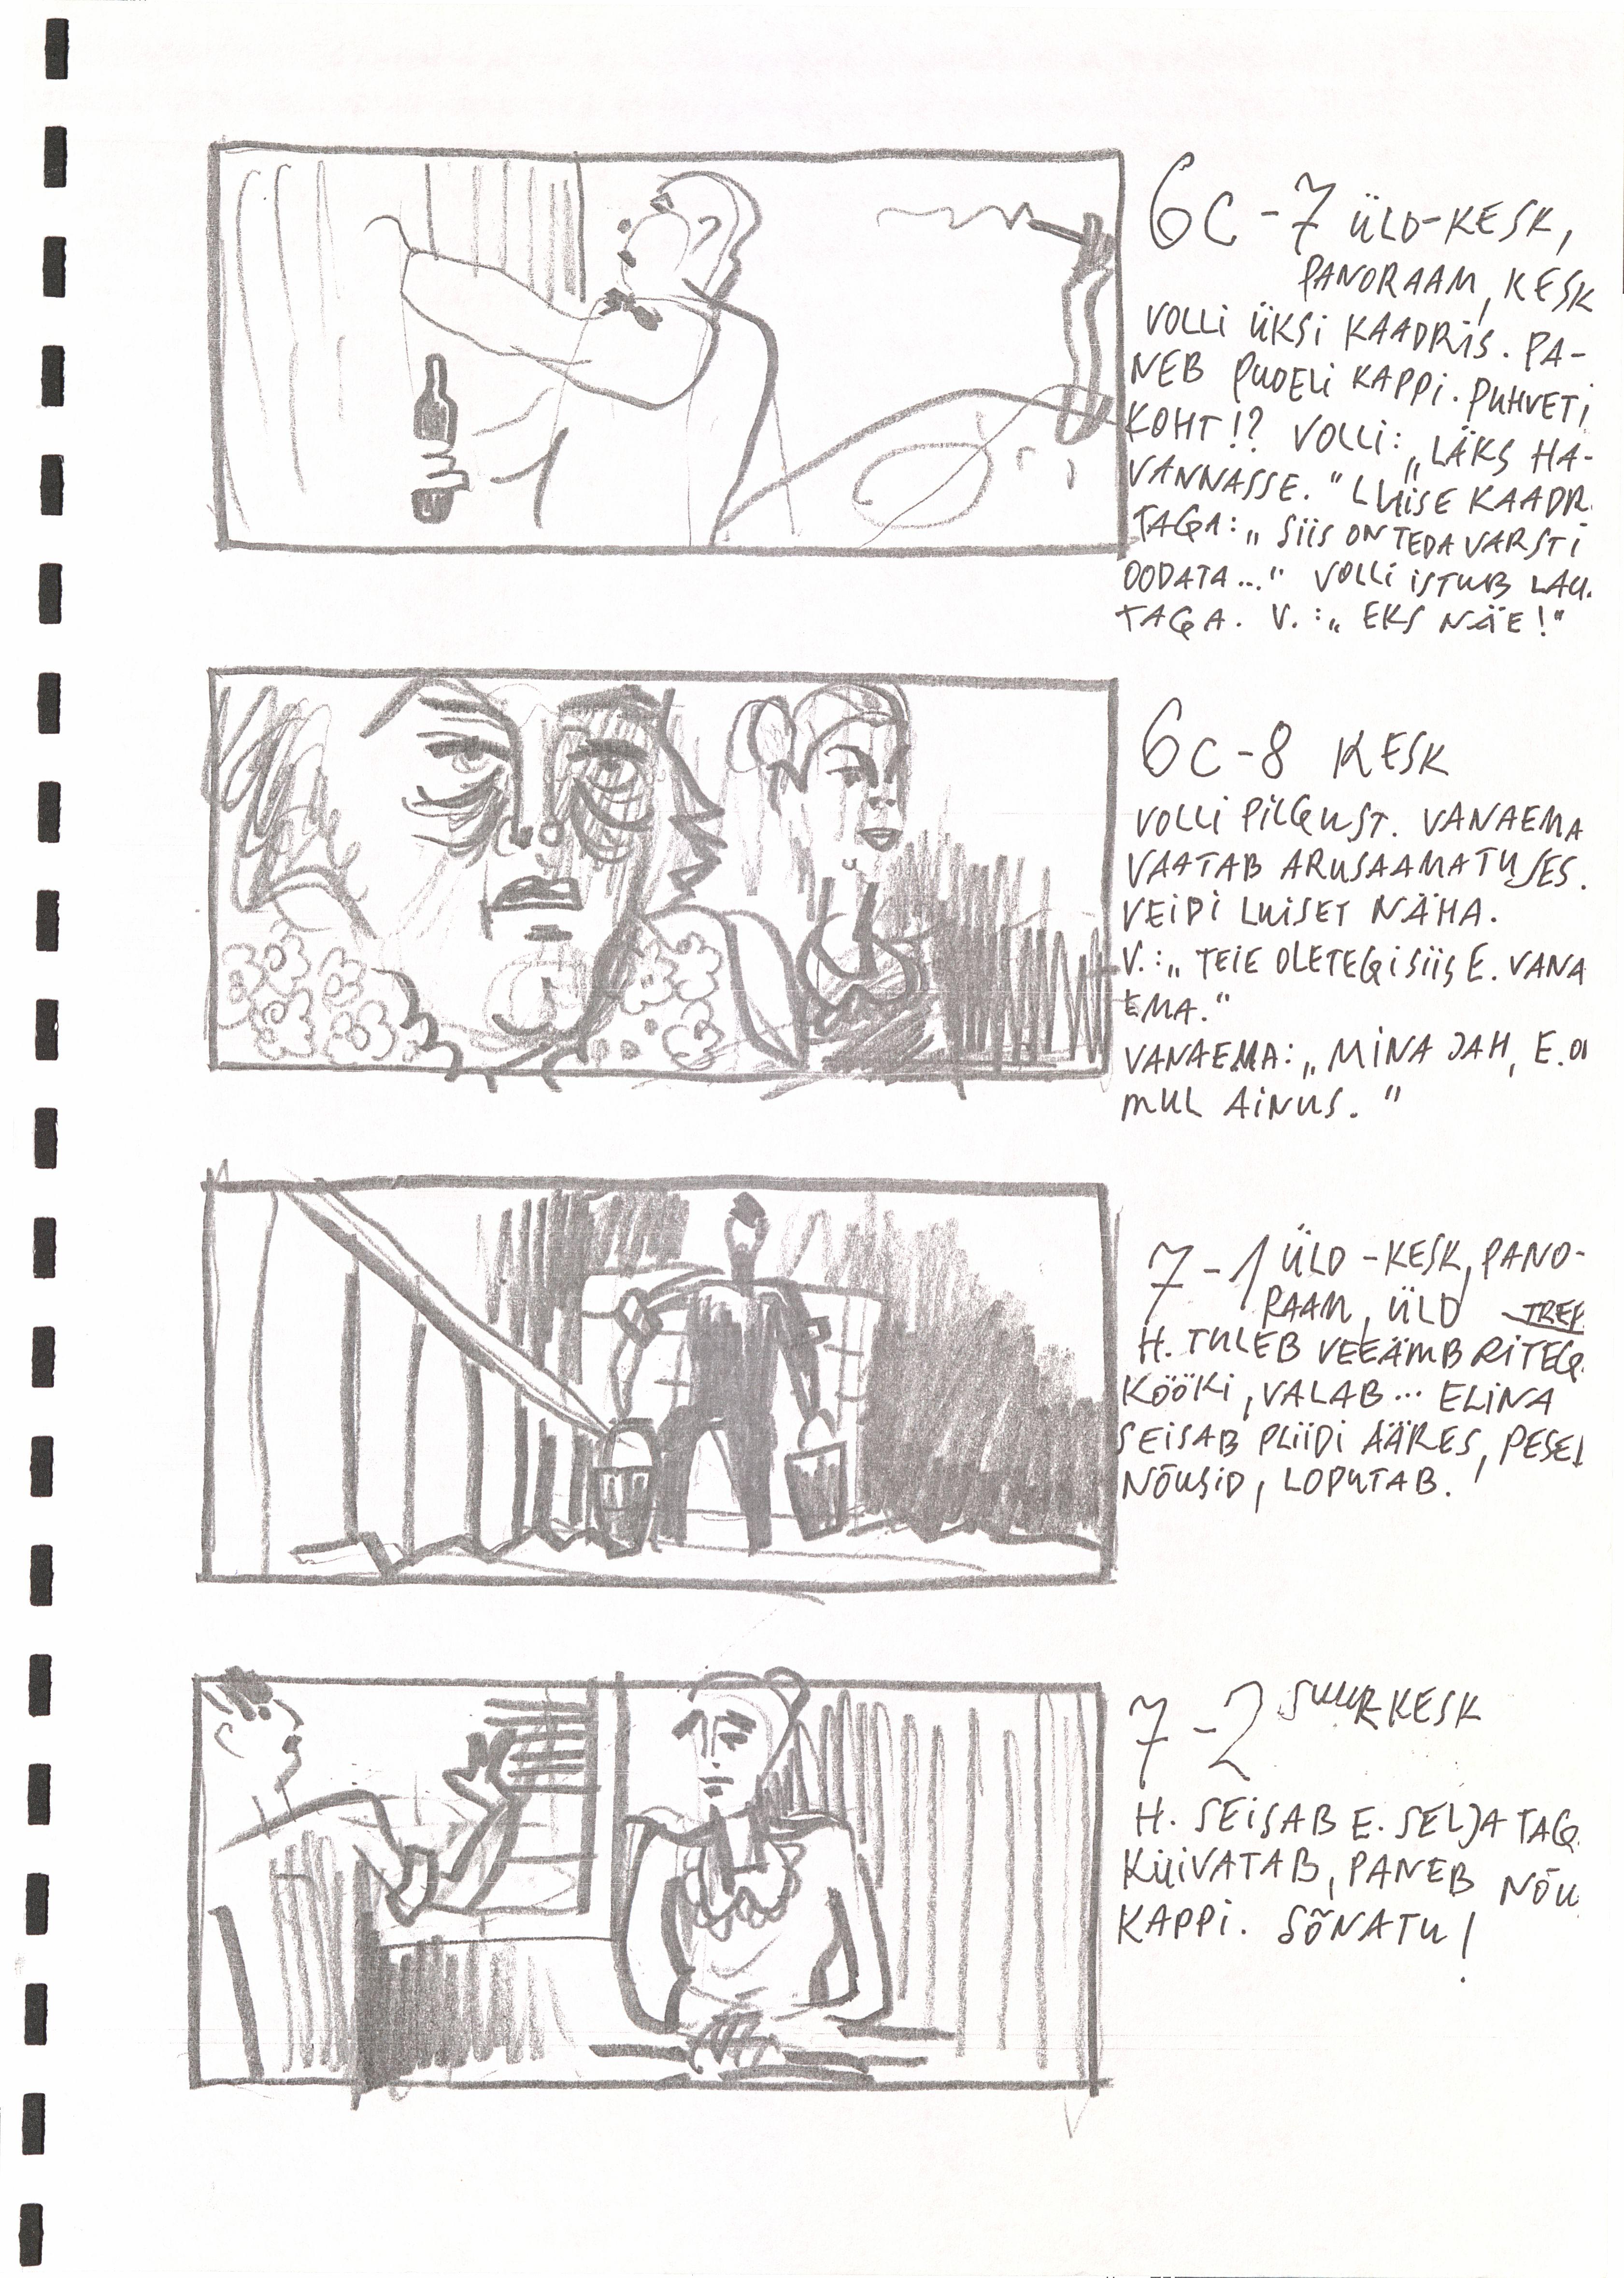 6C-7 ÜLD-KESK,
PANORAAM, KESK
VOLLI ÜKSI KAADRIS. PA-
NEB PUDELI KAPPI. PUHVETI
KOHT!? VOLLI: „LÄKS HA-
VANNASSE." LUISE KAADR
TAGA: „SIIS ON TEDA VARSTI
OODATA..." VOLLI ISTUB LAU
TAGA. V.: „EKS NÄE!"
6C-8 KESK
VOLLI PILGUST. VANAEMA
VAATAB ARUSAAMATUSES.
VEIDI LUISET NÄHA.
V.: „TEIE OLETEGI SIIS E. VANA
EMA."
VANAEMA: „MINA JAH, E. ON
MUL AINUS."
7-1 ÜLD-KESK, PANO-
RAAM, ÜLD TREP
H. TULEB VEEÄMBRITEG
KÖÖKI, VALAB... ELINA
SEISAB PLIIDI ÄÄRES, PESEB
NÕUSID, LOPUTAB.
7-2 SUURKESK
H. SEISAB E. SELJA TAG
KUIVATAB, PANEB NÕU
KAPPI. SÕNATU!